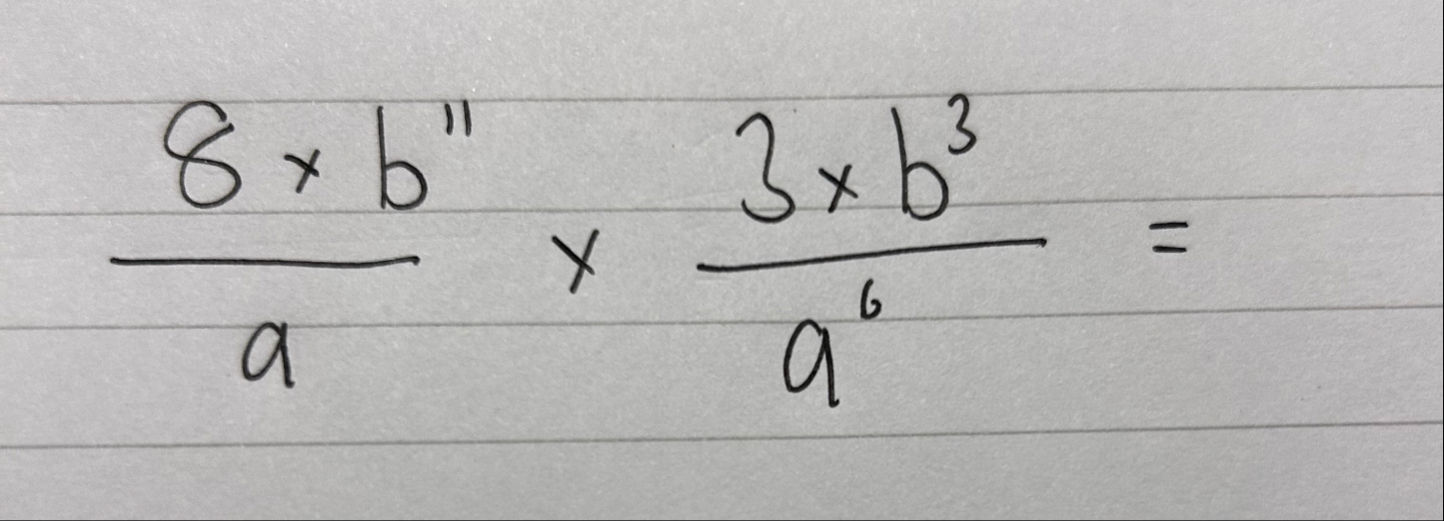 8 × b¹¹ / a × 3 × b³ / a⁶ =